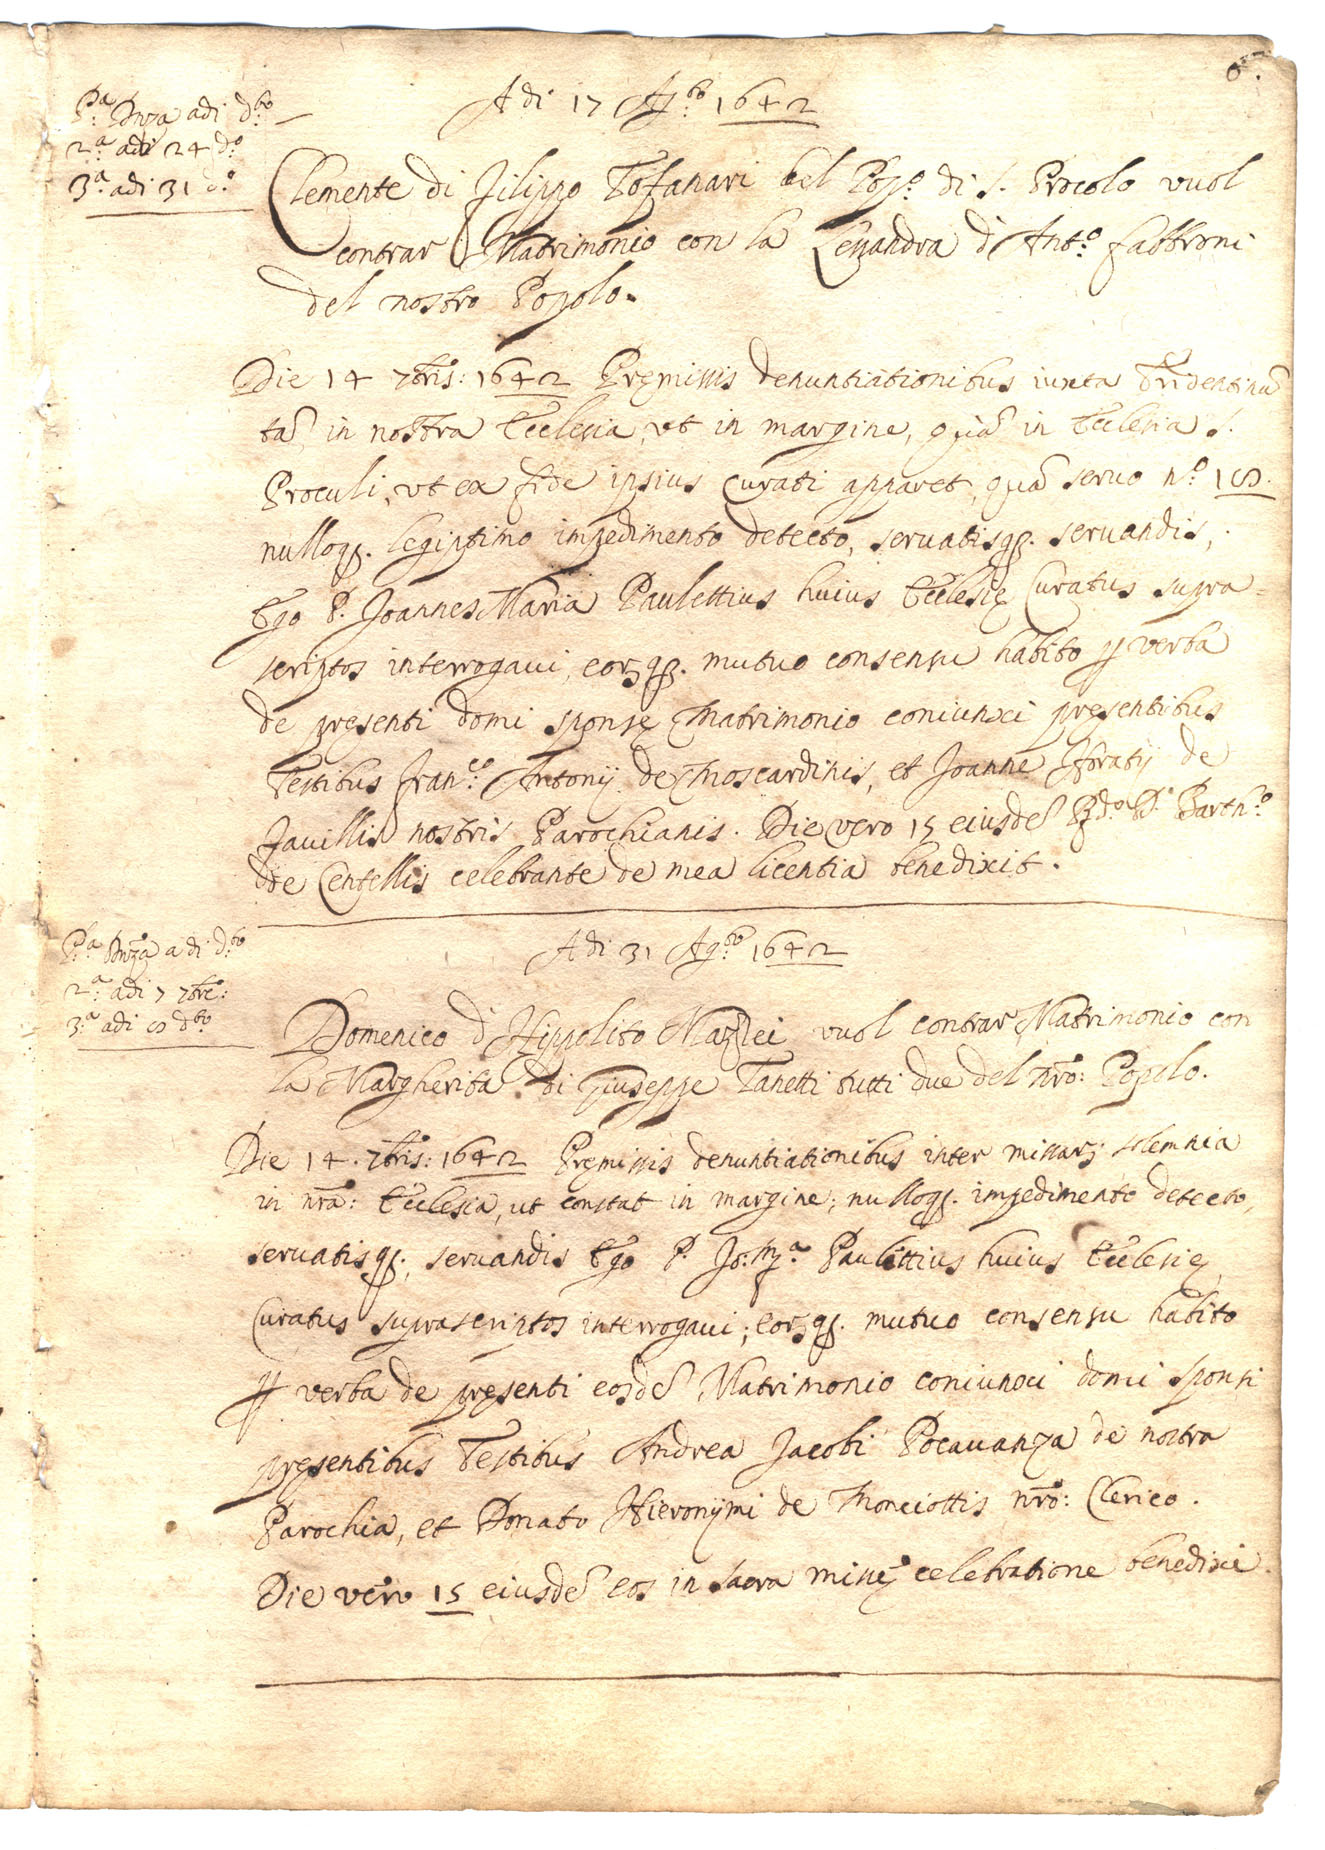 Adi 17 Ag.to 1642
P.a Dnza adi d.to
2.a adi 24 d.o
3.a adi 31 d.o
Clemente di Filippo Tofanari del Pop.o di S. Procolo vuol
contrar Matrimonio con la Lessandra d'Ant.o fabbroni
del nostro Popolo.
Die 14 7bris: 1642 Premissis denuntiationibus iuxta Tridentinũ
tã in nostra Ecclesia, ut in margine, quã in Ecclesia S.
Proculi, ut ex fide ipsius Curati apparet, quã servo n.o
nulloq3. legiptimo impedimento detecto, servatisq3. servandis,
Ego P. Joannes Maria Paulettius huius Ecclesię Curatus supra=
scriptos interrogavi, eorq3. mutuo consensu habito p verba
de presenti domi sponsę Matrimonio coniunxi presentibus
Testibus Fran.co Antonij de Moscardinis, et Joanne Horatij de
Favillis nostris Parochianis. Die vero 15 eiusdẽ P. Barth.o
de Centellis celebrante de mea licentia benedixit.
Adi 31 Ag.to 1642
P.a Dnza adi d.to
2.a adi 7 7bre:
3.a adi d.to
Domenico d'Hippolito Mazzei vuol contrar Matrimonio con
la Margherita di Giuseppe Tanetti tutti due del nro: Popolo.
Die 14. 7bris: 1642 Premissis denuntiationibus inter missarȝ solemnia
in nra: Ecclesia, ut constat in margine; nulloq3. impedimento detecto,
servatisq3. servandis Ego P. Jo: M.a Paulettius huius Ecclesię
Curatus suprascriptos interrogavi; eorq3. mutuo consensu habito
p verba de presenti eosdẽ Matrimonio coniunxi domi sponsi
presentibus Testibus Andrea Jacobi Pocavanza de nostra
Parochia, et Donato Hieronymi de Monciottis nro: Clerico.
Die vero 15 eiusdẽ eos in sacra missę celebratione benedixi.